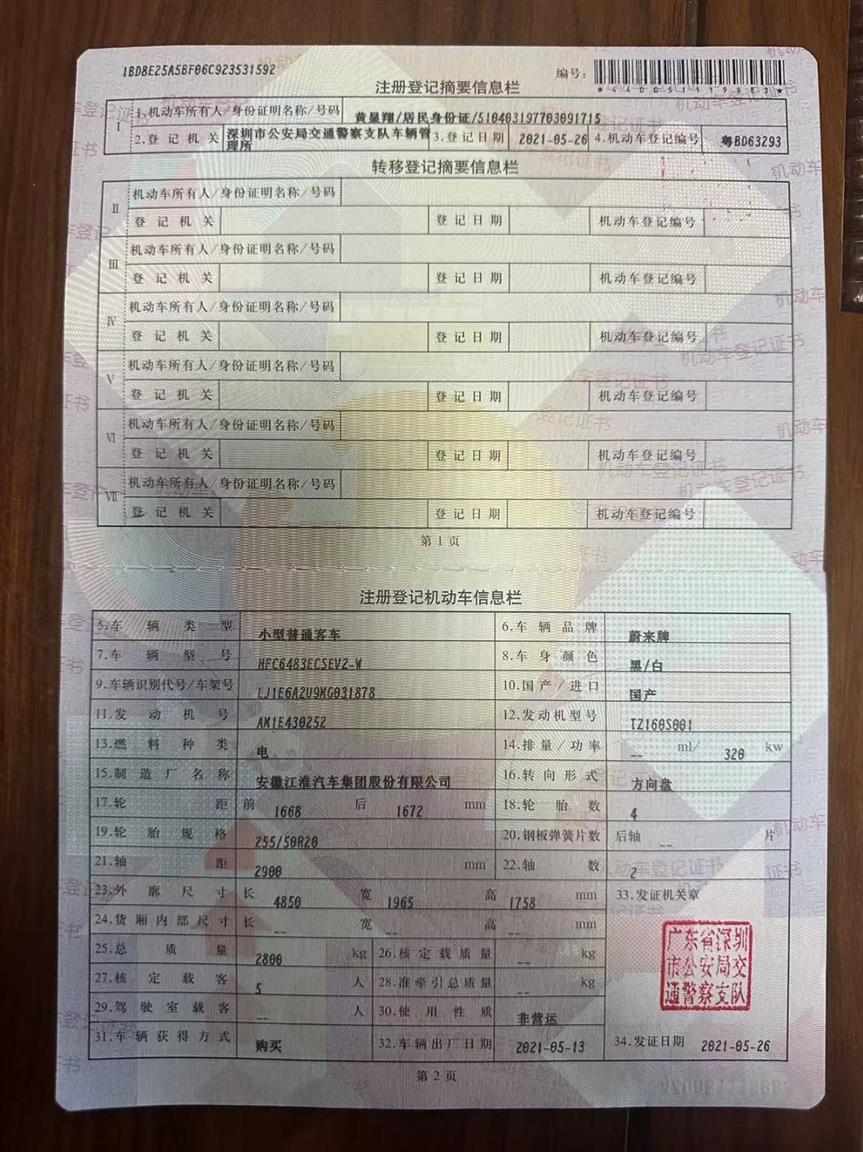 1BD8E25A5BF06C923531592
编号:
*440051119983*
注册登记摘要信息栏
I 1.机动车所有人/身份证明名称/号码 黄显翔/居民身份证/510403197703091715
2.登记机关 深圳市公安局交通警察支队车辆管理所 3.登记日期 2021-05-26 4.机动车登记编号 粤BD63293
转移登记摘要信息栏
II 机动车所有人/身份证明名称/号码
登记机关 登记日期 机动车登记编号
III 机动车所有人/身份证明名称/号码
登记机关 登记日期 机动车登记编号
IV 机动车所有人/身份证明名称/号码
登记机关 登记日期 机动车登记编号
V 机动车所有人/身份证明名称/号码
登记机关 登记日期 机动车登记编号
VI 机动车所有人/身份证明名称/号码
登记机关 登记日期 机动车登记编号
VII 机动车所有人/身份证明名称/号码
登记机关 登记日期 机动车登记编号
第1页
注册登记机动车信息栏
5.车辆类型 小型普通客车 6.车辆品牌 蔚来牌
7.车辆型号 HFC6483ECSEV2-W 8.车身颜色 黑/白
9.车辆识别代号/车架号 LJ1E6A2U9MG031878 10.国产/进口 国产
11.发动机号 AM1E430252 12.发动机型号 TZ160S001
13.燃料种类 电 14.排量/功率 -- ml/ 320 kw
15.制造厂名称 安徽江淮汽车集团股份有限公司 16.转向形式 方向盘
17.轮距 前 1668 后 1672 mm 18.轮胎数 4
19.轮胎规格 255/50R20 20.钢板弹簧片数 后轴 -- 片
21.轴距 2900 mm 22.轴数 2
23.外廓尺寸 长 4850 宽 1965 高 1758 mm 33.发证机关章
24.货厢内部尺寸 长 -- 宽 -- 高 -- mm
25.总质量 2800 kg 26.核定载质量 -- kg
27.核定载客 5 人 28.准牵引总质量 -- kg
29.驾驶室载客 -- 人 30.使用性质 非营运
31.车辆获得方式 购买 32.车辆出厂日期 2021-05-13 34.发证日期 2021-05-26
广东省深圳
市公安局交
通警察支队
第2页